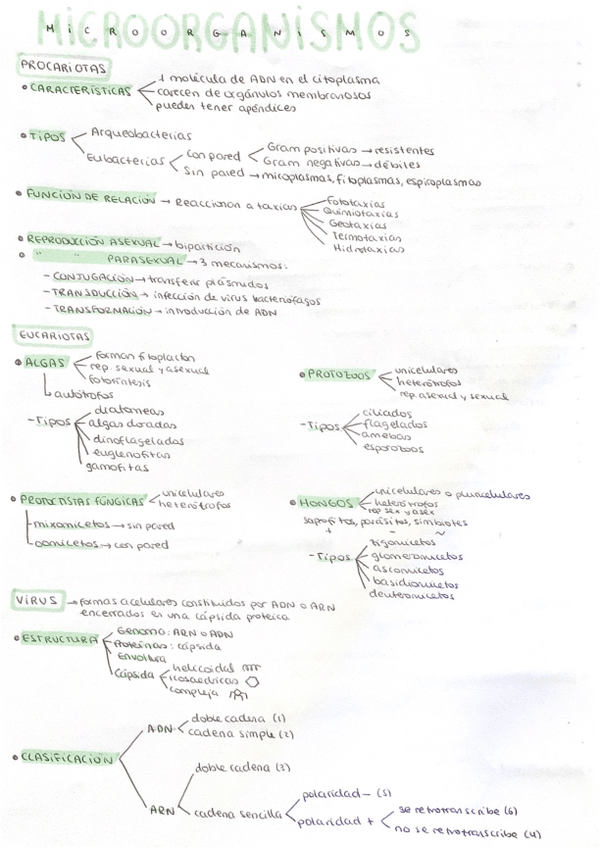 MICROORGANISMOS
PROCARIOTAS
• CARACTERÍSTICAS
1 molécula de ADN en el citoplasma
carecen de orgánulos membranosos
pueden tener apéndices
• TIPOS
Arqueobacterias
Eubacterias
Con pared
Gram positivas → resistentes
Gram negativas → débiles
Sin pared → micoplasmas, fitoplasmas, espiroplasmas
• FUNCIÓN DE RELACIÓN → Reaccionan a taxias
Fototaxias
Quimiotaxias
Geotaxias
Termotaxias
Hidrotaxias
• REPRODUCCIÓN ASEXUAL → bipartición
• " " PARASEXUAL → 3 mecanismos:
- CONJUGACIÓN → transferir plásmidos
- TRANSDUCCIÓN → infección de virus bacteriófagos
- TRANSFORMACIÓN → introducción de ADN
EUCARIOTAS
• ALGAS
forman fitoplacton
rep. sexual y asexual
fotosíntesis
autótrofos
- Tipos
diatomeas
algas doradas
dinoflageladas
euglenofitas
gamofitas
• PROTOZOOS
unicelulares
heterótrofos
rep. asexual y sexual
- Tipos
ciliados
flagelados
amebas
esporozoos
• PROTOCTISTAS FÚNGICAS
unicelulares
heterótrofos
mixomicetos → sin pared
oomicetos → con pared
• HONGOS
unicelulares o pluricelulares
heterótrofos
rep sex y asex
saprofitos, parásitos, simbiotes
+ - ~
- Tipos
zigomicetos
glomeromicetos
ascomicetos
basidiomicetos
deuteromicetos
VIRUS → formas acelulares constituidos por ADN o ARN
encerrados en una cápsida proteica
• ESTRUCTURA
Genoma: ARN o ADN
Proteínas: cápsida
Envoltura
Cápsida
helicoidal
icosaedricas
compleja
• CLASIFICACIÓN
ADN
doble cadena (1)
cadena simple (2)
ARN
doble cadena (3)
cadena sencilla
polaridad - (5)
polaridad +
se retrotranscribe (6)
no se retrotranscribe (4)